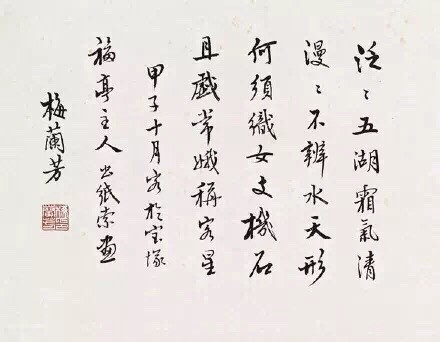 泛〻五湖霜氣清
漫〻不辨水天形
何須織女支機石
且戲常娥稱客星
甲子十月客於宝塚
福亭主人出紙索畫
梅蘭芳